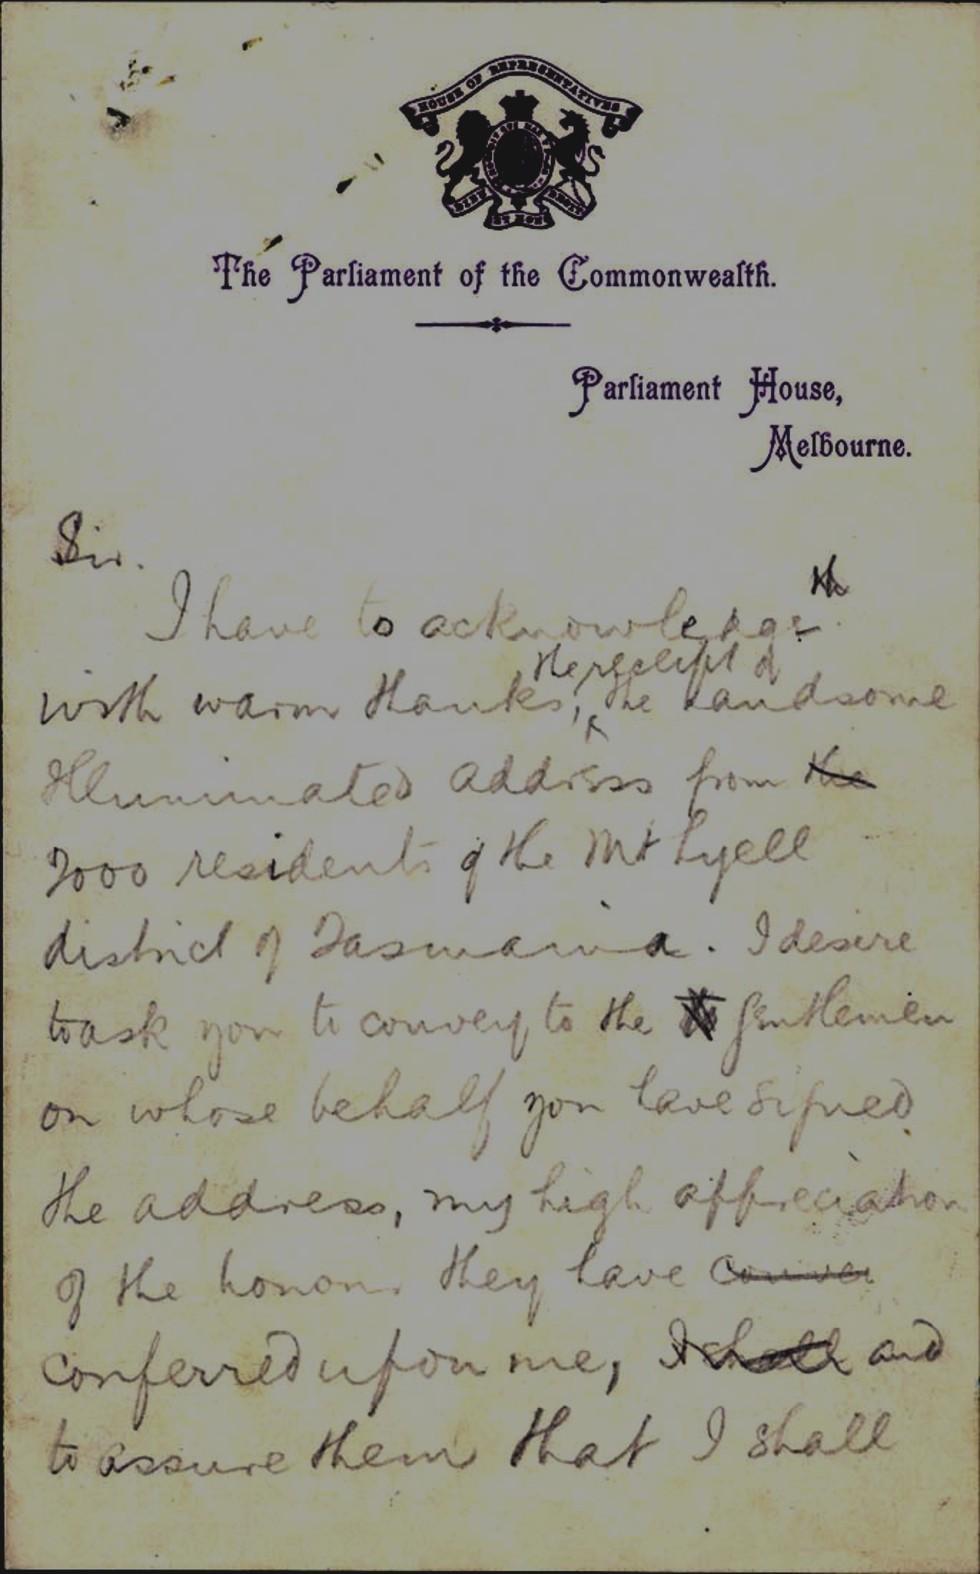 HOUSE OF REPRESENTATIVES
DIEU ET MON DROIT
The Parliament of the Commonwealth.
Parliament House,
Melbourne.
Sir.
th
I have to acknowledge
the receipt of
with warm thanks, the handsome
Illuminated address from the
2000 residents of the Mt Lyell
district of Tasmania. I desire
to ask you to convey to the gentlemen
on whose behalf you have signed
the address, my high appreciation
of the honour they have conve
conferred upon me, I shall and
to assure them that I shall